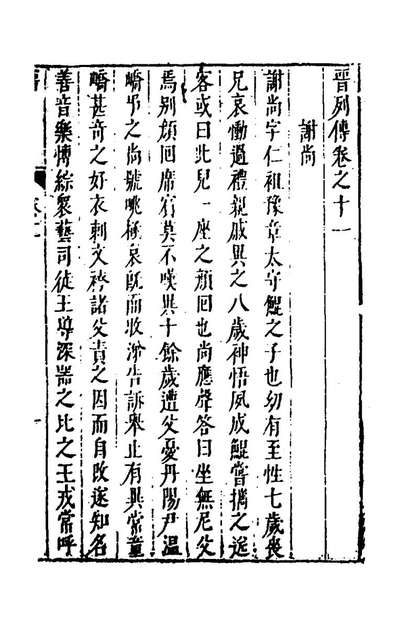 晉列傳卷之十一
謝尚
謝尚字仁祖豫章太守鯤之子也幼有至性七歲喪
兄哀慟過禮親戚異之八歲神悟夙成鯤嘗攜之送
客或曰此兒一座之顏回也尚應聲答曰坐無尼父
焉別顏回席賓莫不嘆異十餘歲遭父憂丹陽尹溫
嶠弔之尚號咷極哀既而收涕告訴舉止有異常童
嶠甚奇之好衣刺文袴諸父責之因而自改遂知名
善音樂博綜衆藝司徒王導深器之比之王戎常呼